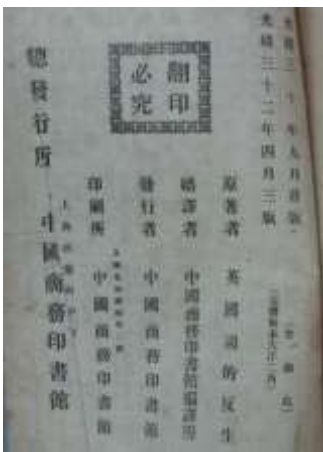 光緒三十年九月首版
光緒三十二年四月三版
翻印
必究
原著者 英國司的反生
繙譯者 中國商務印書館編譯所
發行者 中國商務印書館
印刷所 中國商務印書館
總發行所 中國商務印書館